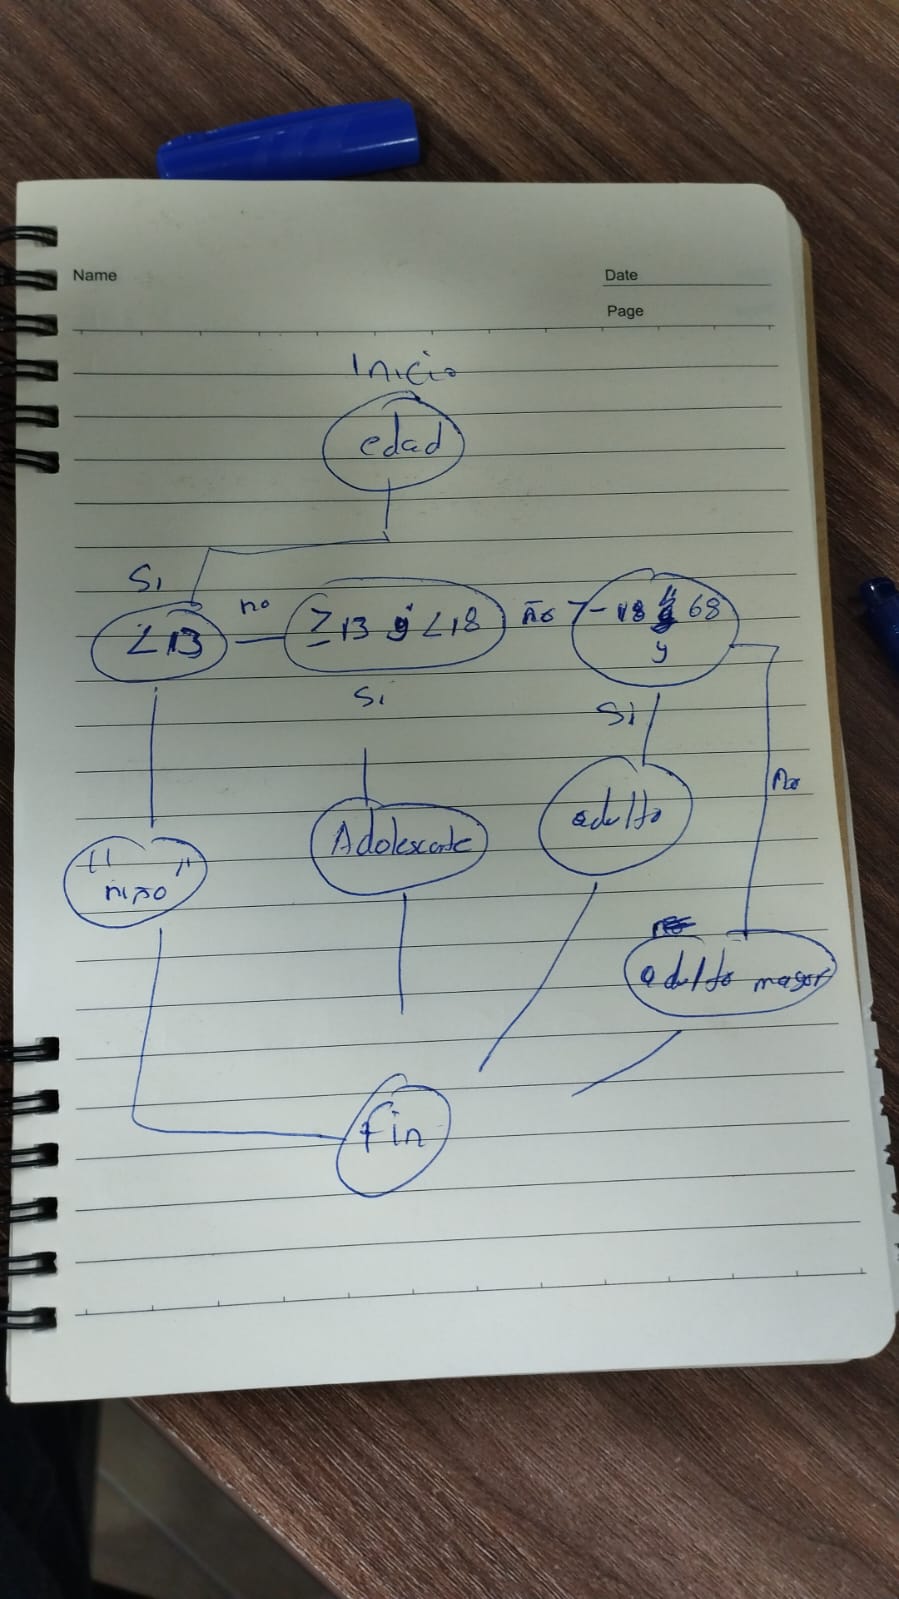 Name
Date
Page
Inicio
edad
Si
<13
no
≥13 y <18
no
18 y 68
Si
Si
no
"niño"
Adolescente
adulto
adulto mayor
Fin